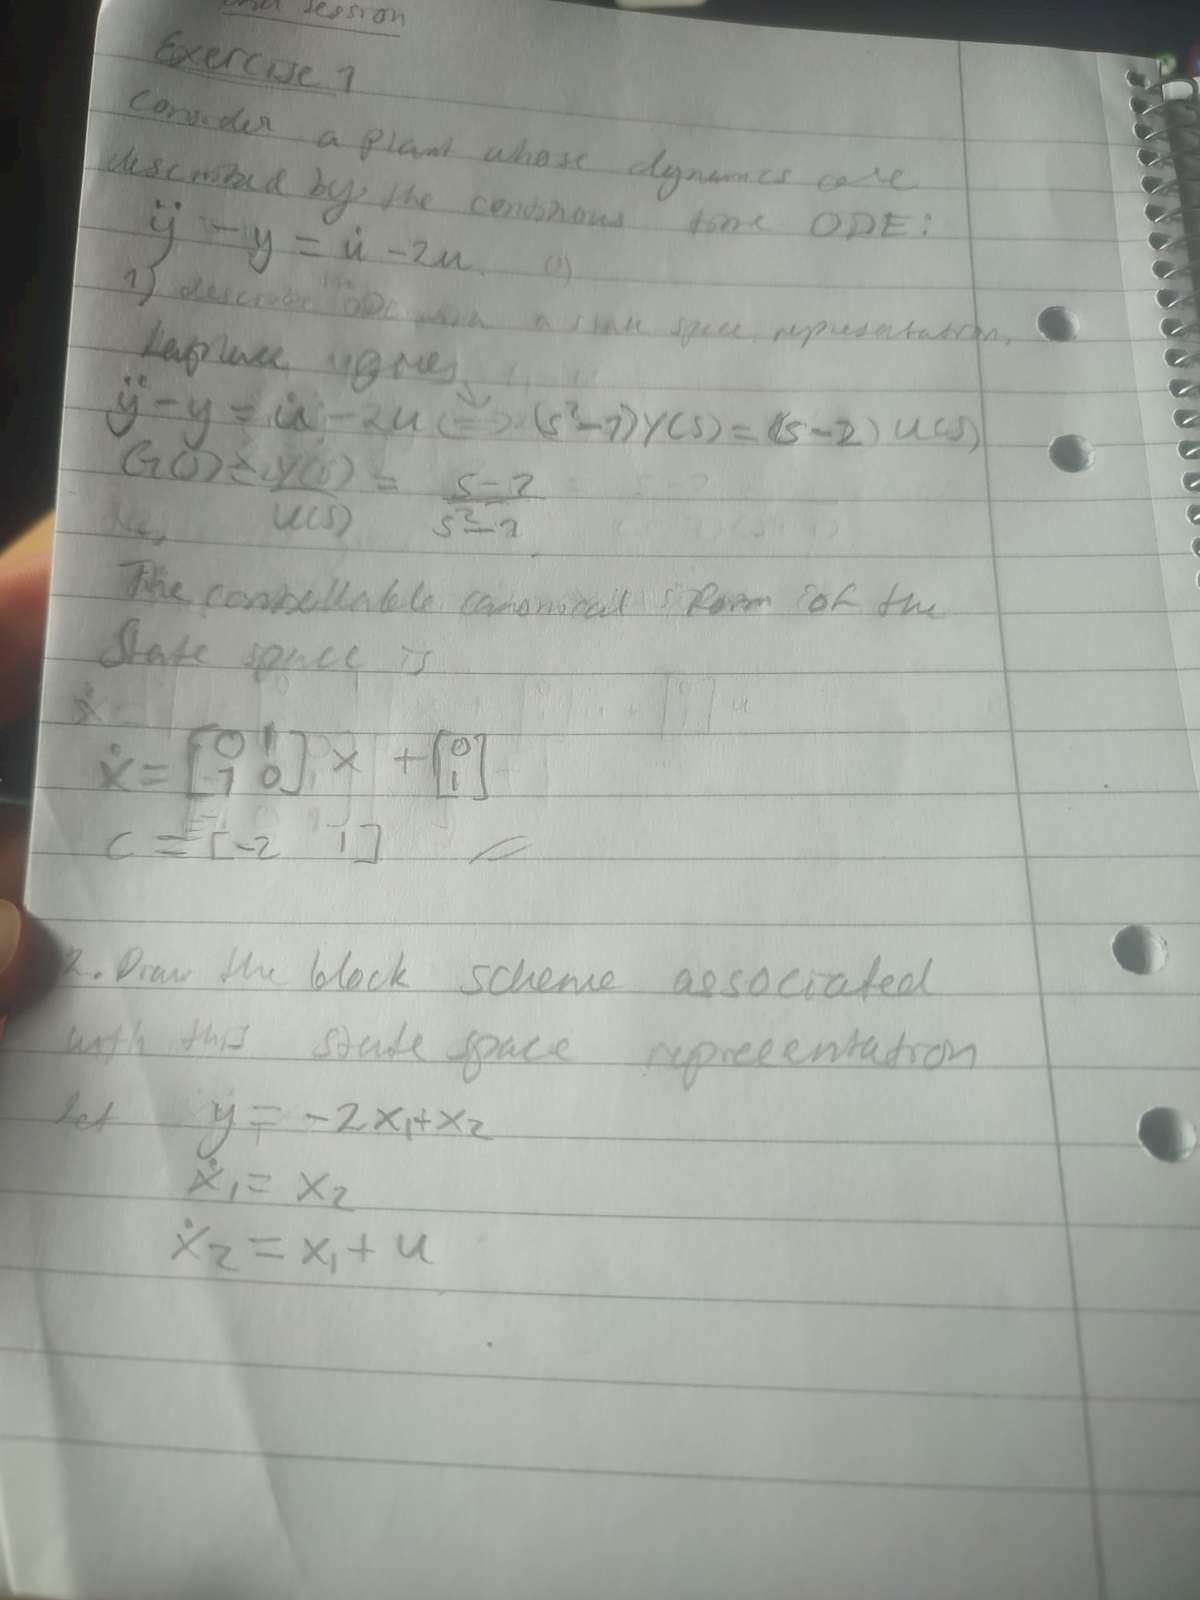 session
Exercise 1
Consider a plant whose dynamics are
described by the continous time ODE:
ÿ - y = u̇ - 2u (1)
1) describe the ODE a state space representation,
Laplace
ÿ - y = u̇ - 2u (=) (s²-1)Y(s) = (s-2) U(s)
G(s) = Y(s)/U(s) = s-2/s²-1
The controllable canonical form of the
State space is
ẋ = [0 1; 1 0] x + [0; 1]
C = [-2 1]
2. Draw the block scheme associated
with this state space representation
Let y = -2x₁+x₂
ẋ₁ = x₂
ẋ₂ = x₁ + u